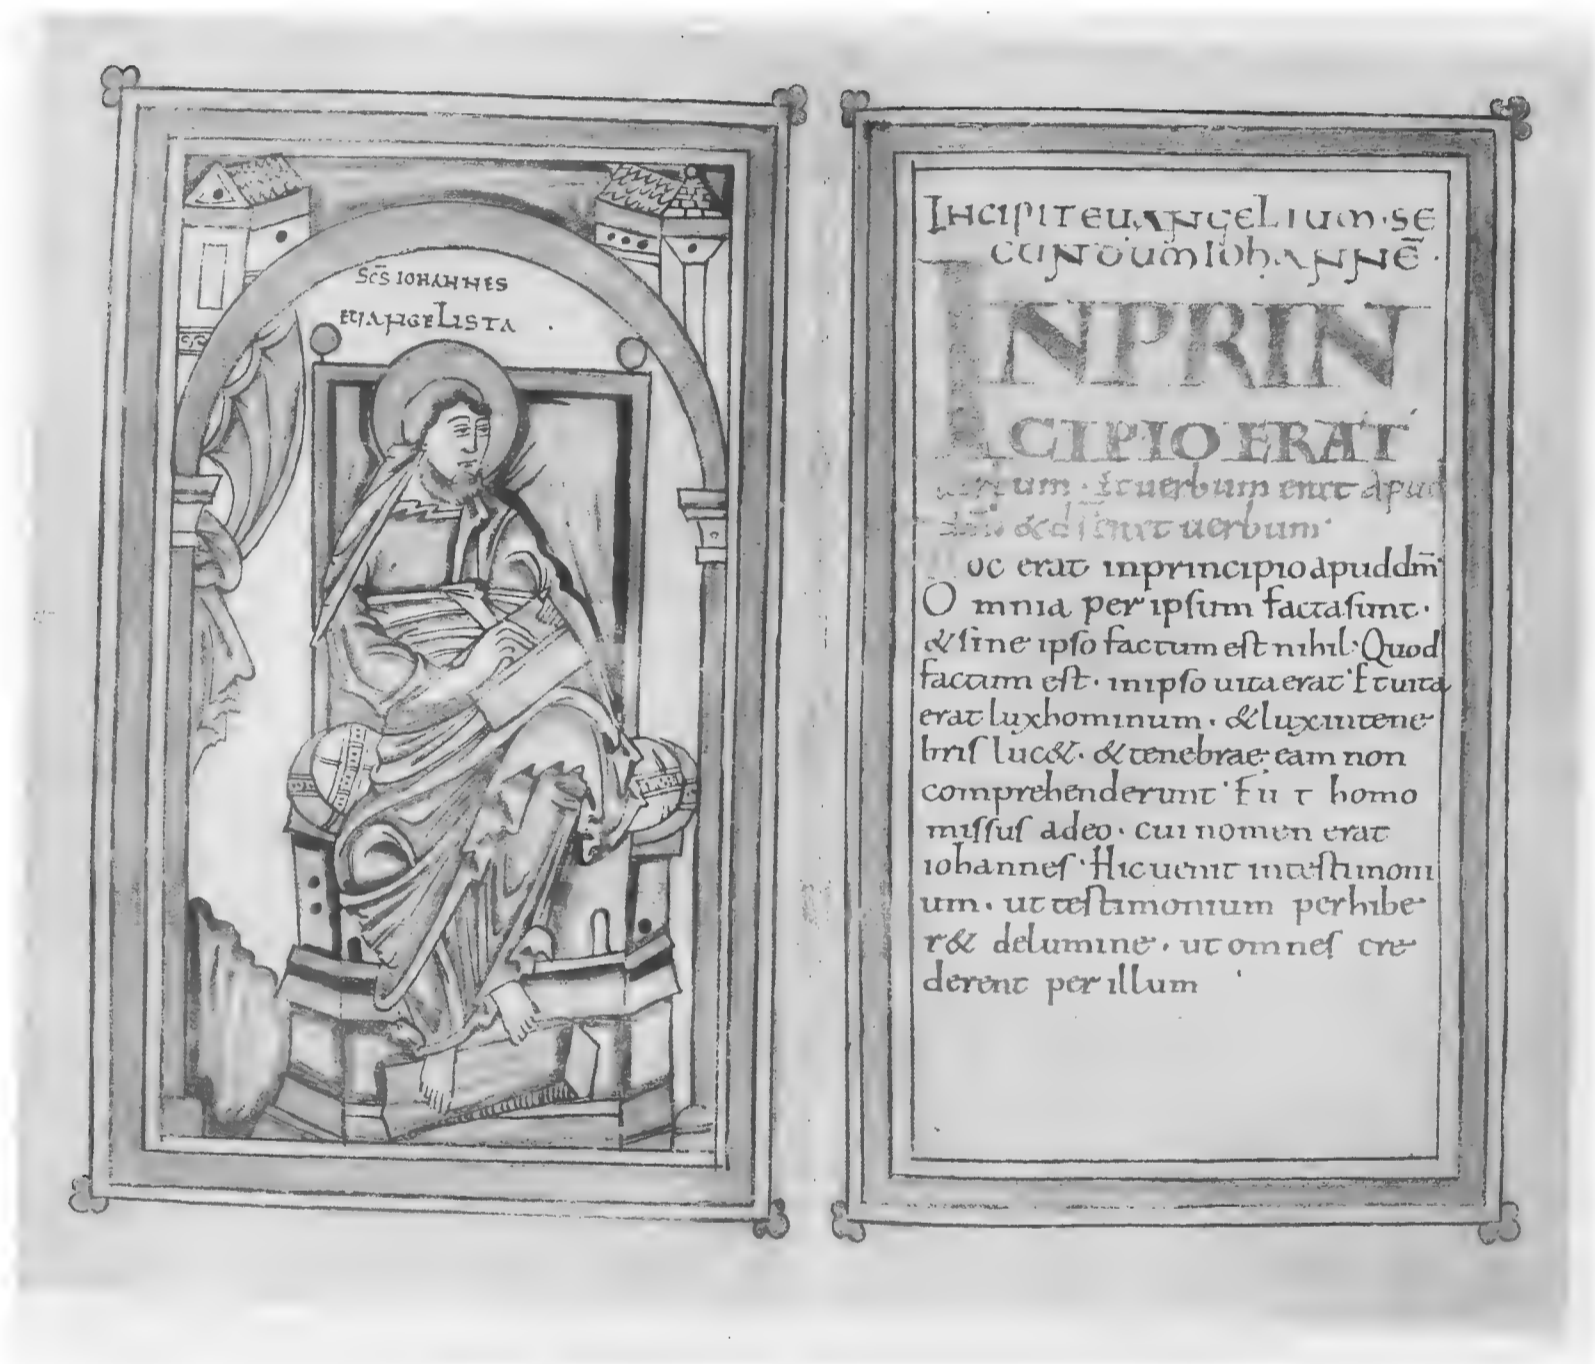 SCS IOHANNES
EUANGELISTA
INCIPIT EUANGELIUM · SE
CUNDUM IOHANNĒ ·
INPRIN
CIPIO ERAT
um · Et uerbum erat apud
& d̄s erat uerbum ·
oc erat inprincipio apud dm̄
Omnia per ipsum facta sunt ·
& sine ipso factum est nihil · Quod
factum est · inipso uita erat · Et uita
erat lux hominum · & lux intene
bris luc& · & tenebrae eam non
comprehenderunt · Fuit homo
missus adeo · cui nomen erat
iohannes · Hic uenit intestimoni
um · ut testimonium perhibe
r& delumine · ut omnes cre
derent per illum